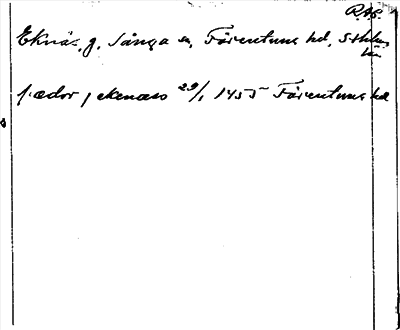 R.A.P.
Eknäs, g. Sånga sn, Färentuna hd, Sthlms
län
p.ædor j ekenæs 29/1 1455 Färentuna hd